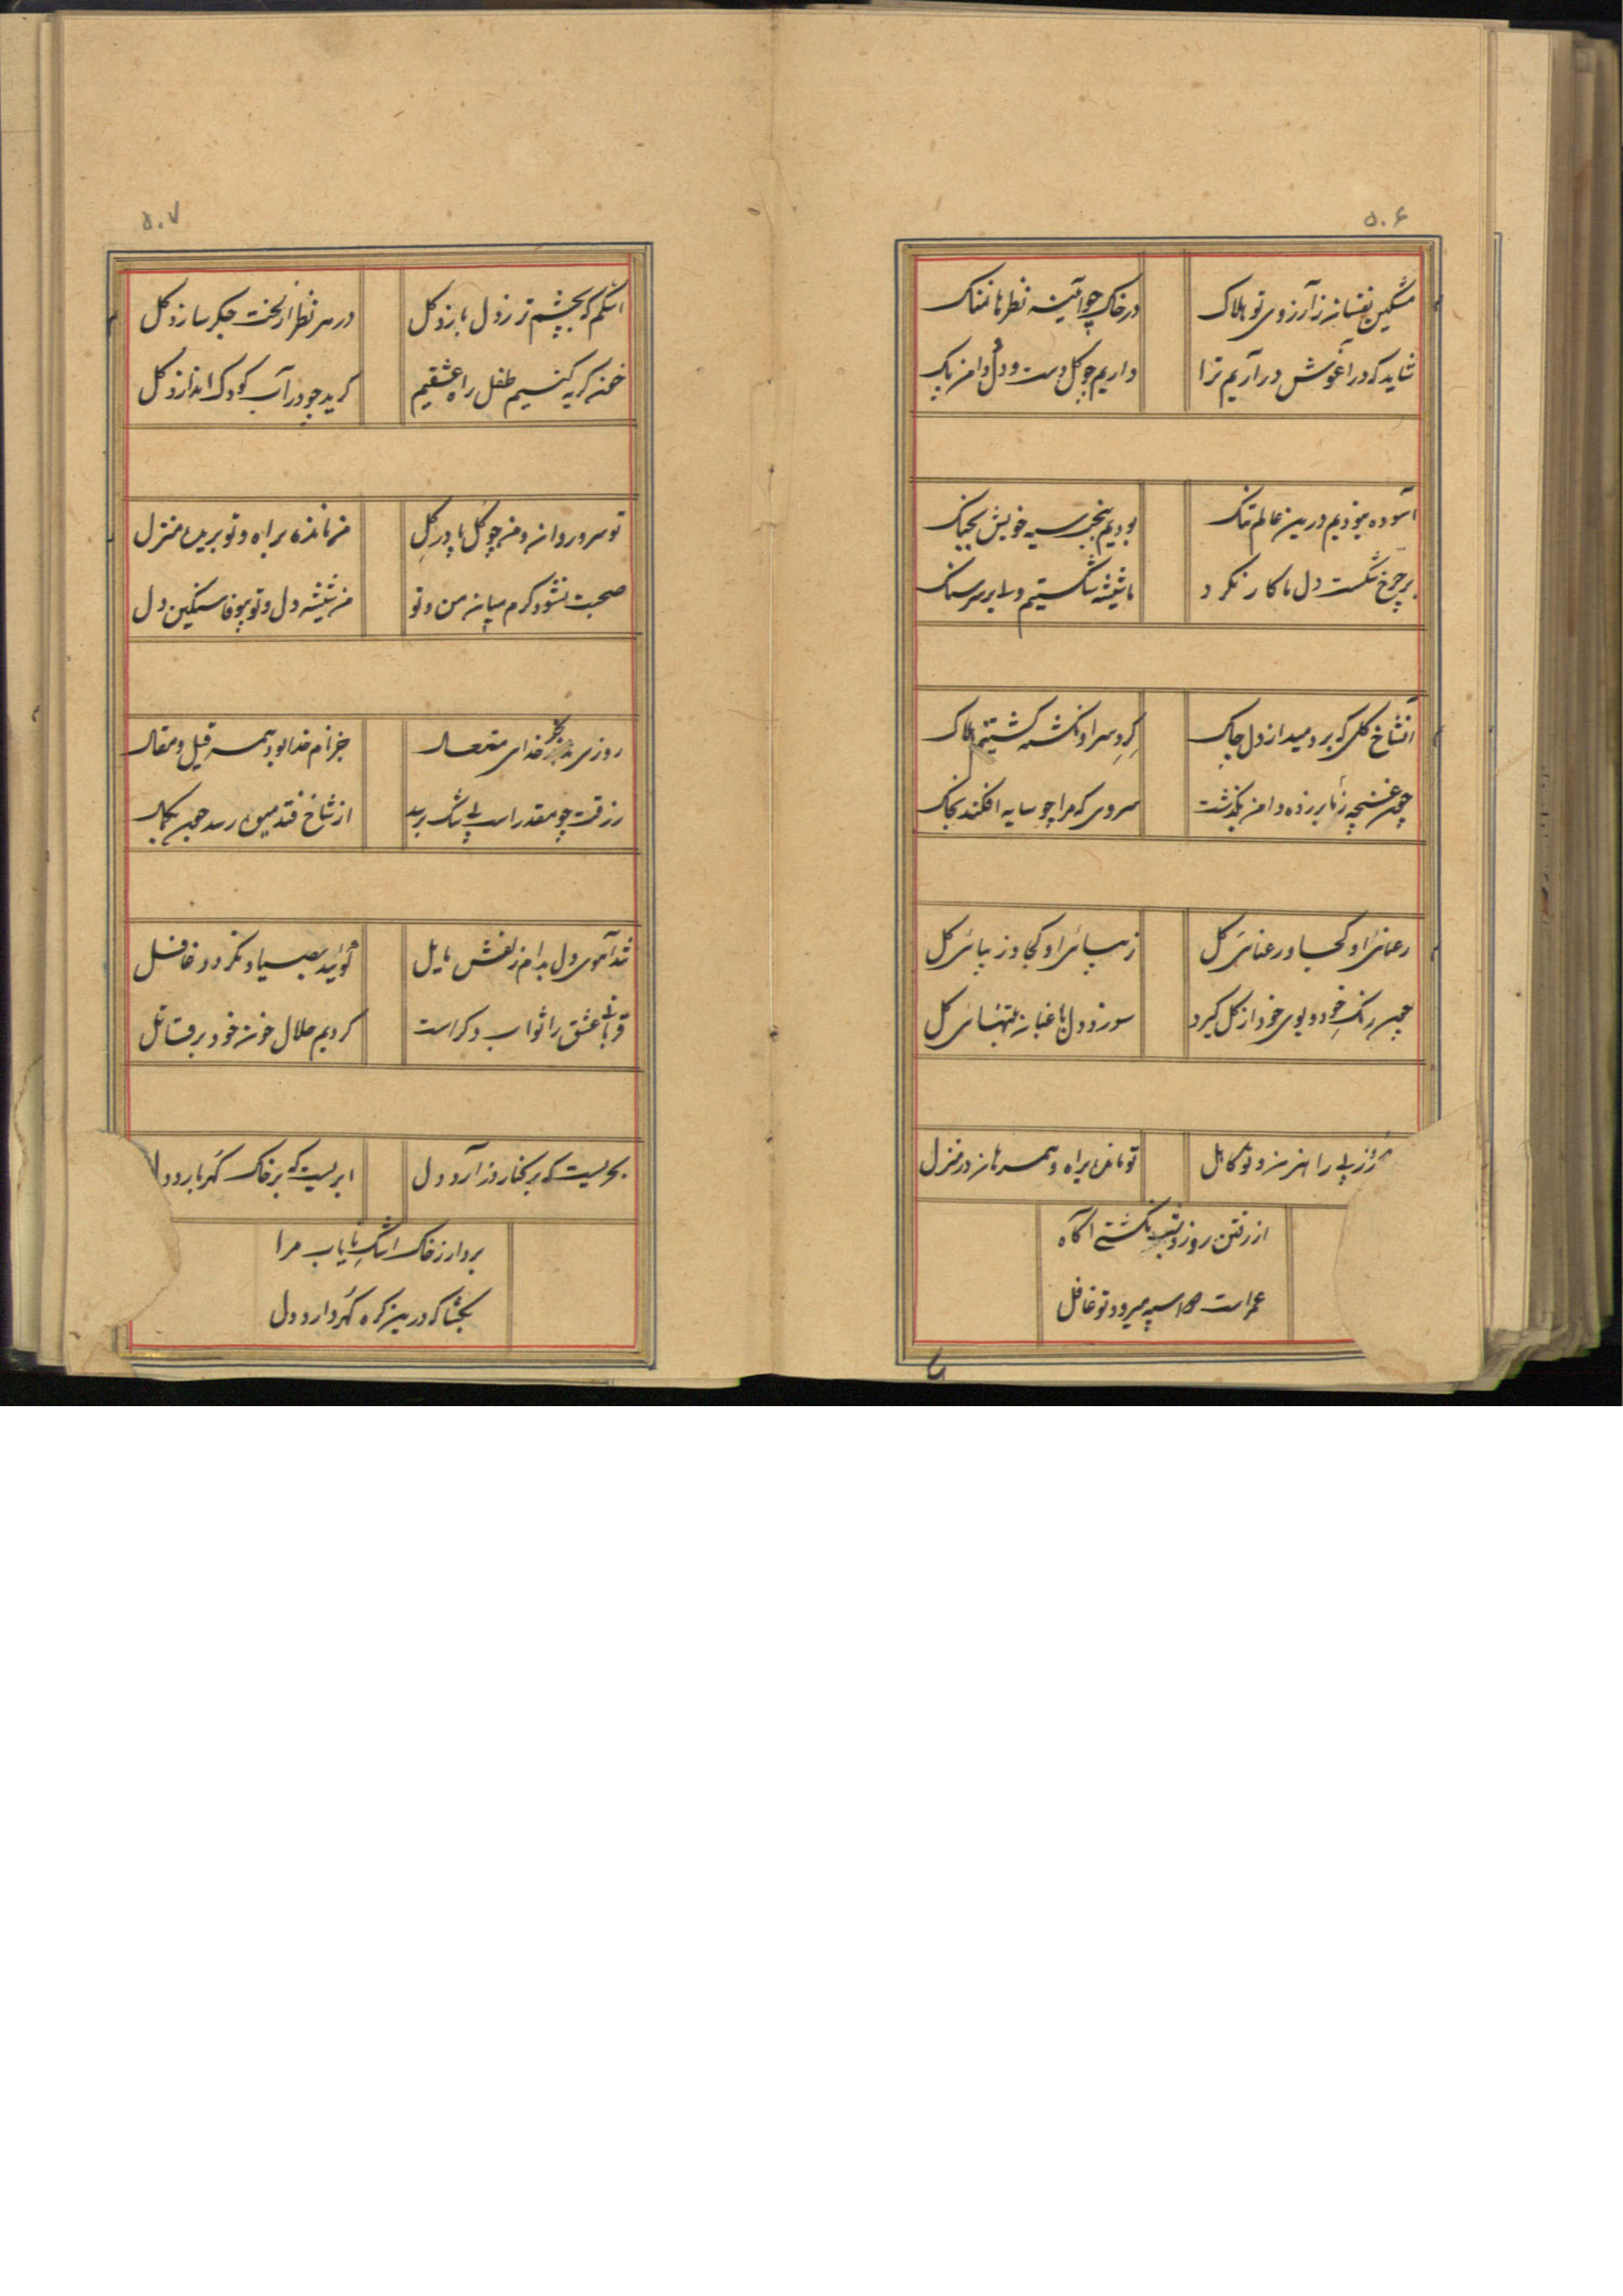 ۵۰۶
مشکین نفسان ز آرزوی تو هلاک
در خاک چو آئینه نظرها نمناک
شاید که در آغوش در آریم ترا
داریم چو گل دست و دل و دامن پاک
آسوده نبودیم درین عالم تنگ
بودیم به سیه خویش بجنگ
بر چرخ شکست دل ما کار نکرد
ما شیشه شکستیم ولی بر سر سنگ
آنشاخ گلی که بر دمید از دل چاک
گرد سر او نگشته گشتیم هلاک
چون غنچه ز ما بر زده دامن بگذشت
سروی که مرا چو سایه افکند بخاک
رعنائی او کجا و رعنائی گل
زیبائی او کجا و زیبائی گل
چون رنگ خود و بوی خود از گل گیرد
سوزد دل باغبان به تنهائی گل
روز پی راهزن و تو کاهل
تو مانده براه و همرهان در منزل
از رفتن روز و شب نگشتی آگاه
عمر است که میرود تو غافل
۵۰۷
اشکم که بچشم تر ز دل بازد گل
در هر نظر از لخت جگر سازد گل
خنده گریه کنیم طفل راه عشقیم
گرید چو در آب کودک اندازد گل
تو سرو روان و من چو گل پا در گل
من مانده براه و تو بریده منزل
صحبت نشود گرم میان من و تو
من شیشه دل و تو بیوفا سنگین دل
روزی خدای متعال
جز نام خدا بود همه قیل و مقال
رزقت چو مقدر است بی شک برسد
از شاخ فتد میوه رسد چون بکمال
شد آهوی دل بدام زلفش مایل
گوئید بصیاد نگردد غافل
قربانی عشق را ثواب دگر است
کردیم حلال خون خود بر قاتل
بحریست که بر کنار در آرد دل
ابریست که بر خاک گهر بارد دل
بردار ز خاک اشک نایاب مرا
بگشا که درین گره گهر دارد دل